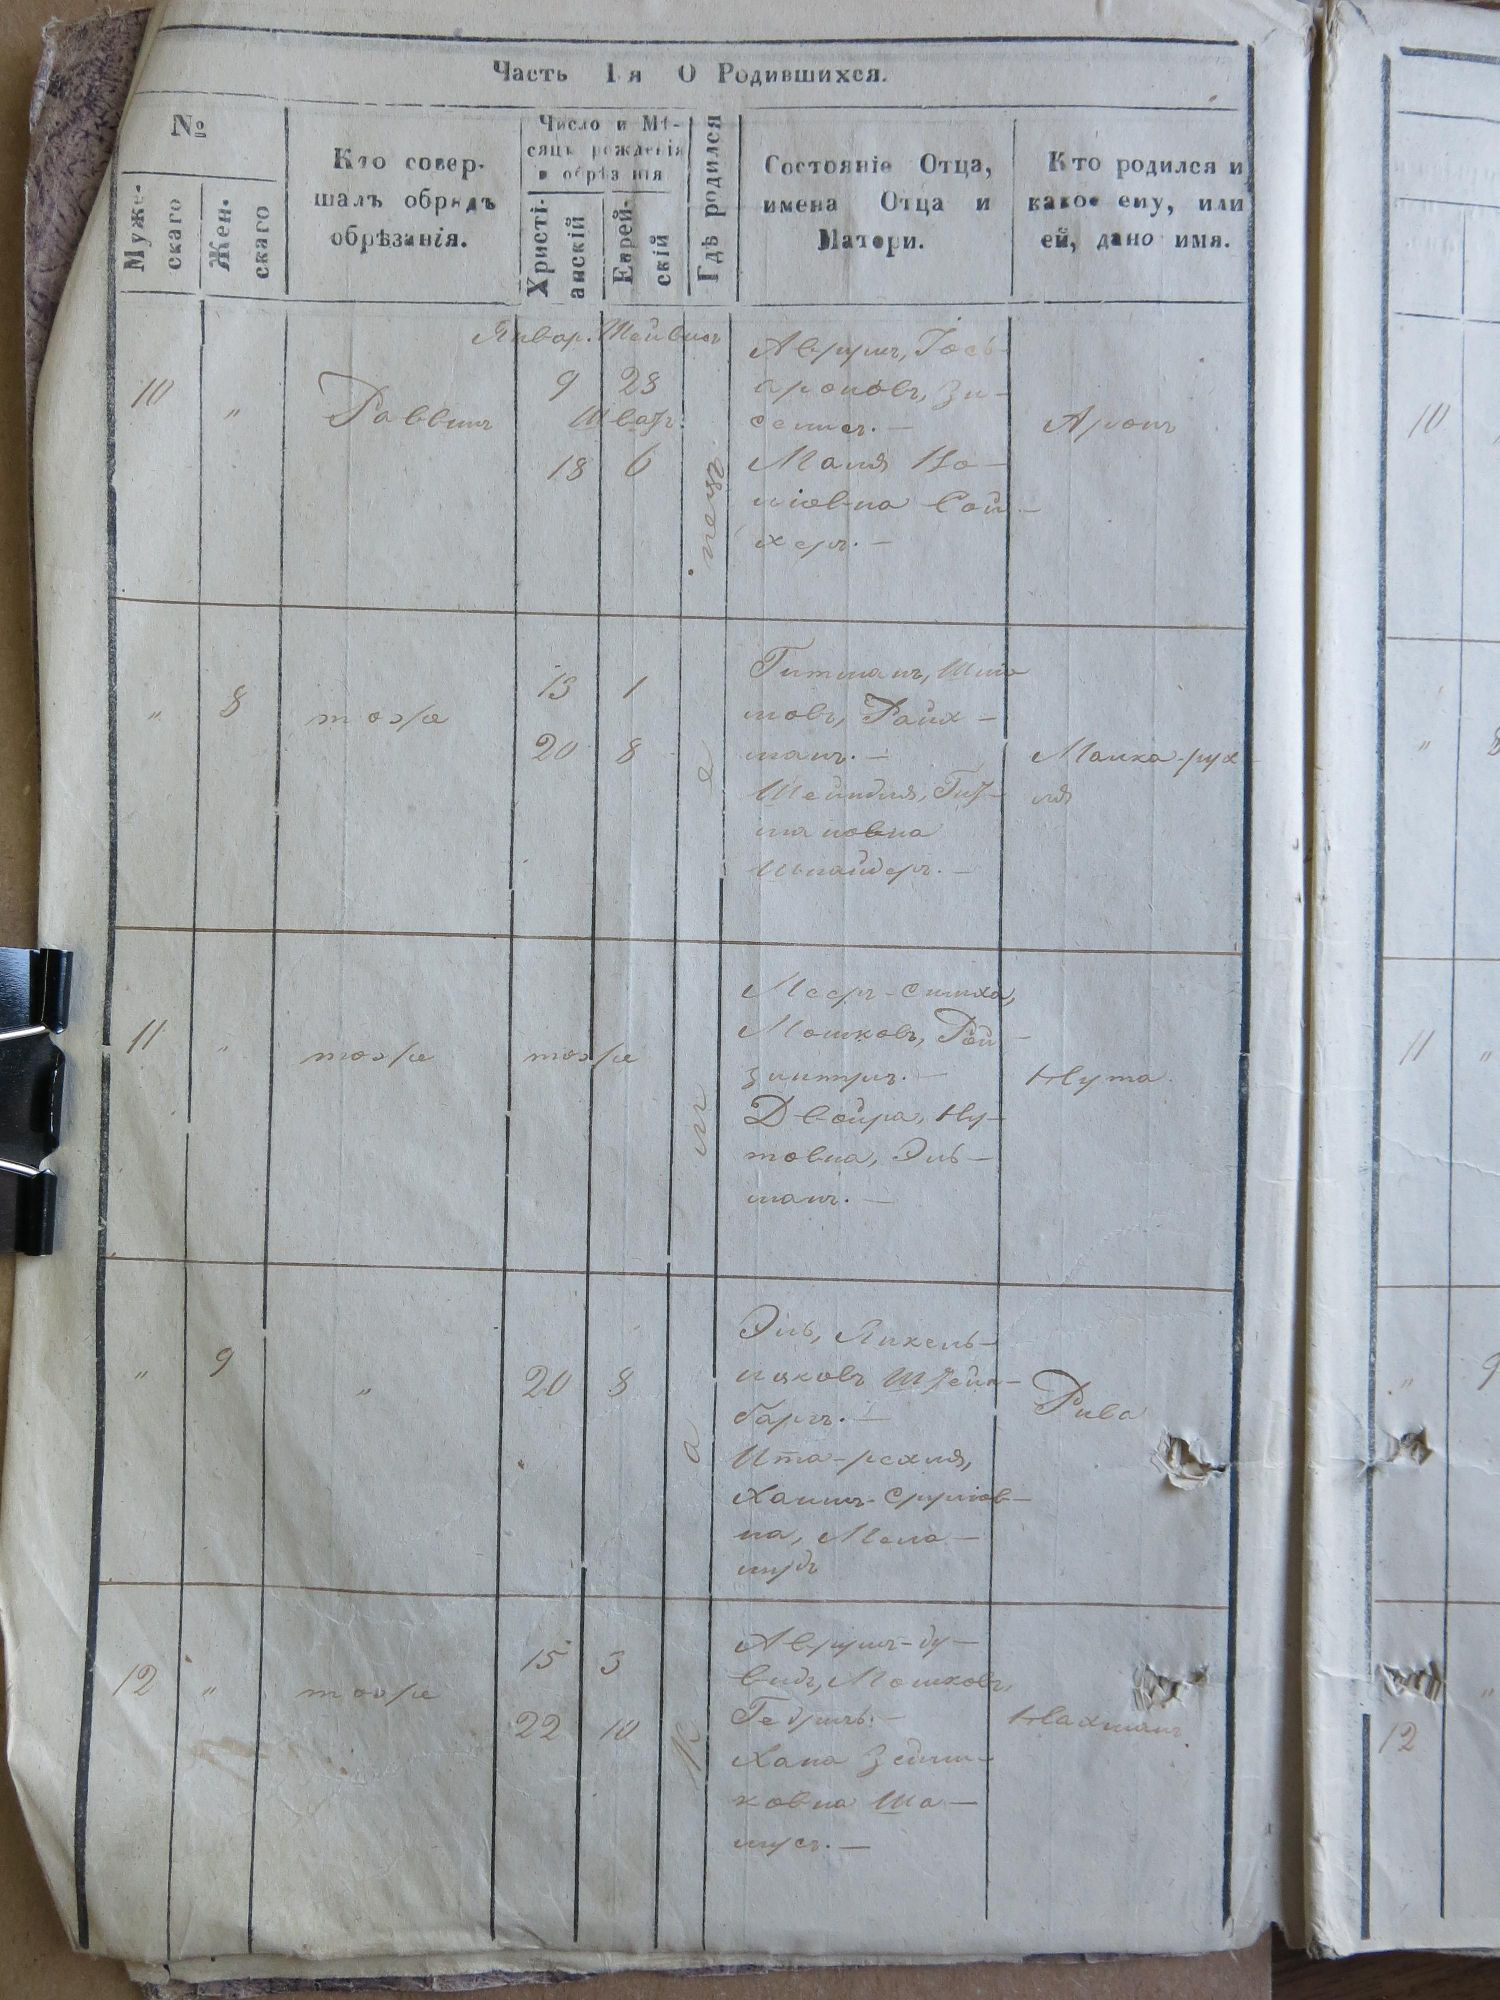 Часть 1-я О Родившихся.
№
Муже-
скаго
Жен-
скаго
Кто совер-
шалъ обрядъ
обрѣзанія.
Число и Мѣ-
сяцъ рожденія
и обрѣзанія
Христі-
анскій
Еврей-
скій
Гдѣ родился
Состояніе Отца,
имена Отца и
Матери.
Кто родился и
какое ему, или
ей, дано имя.
Январ.
10
"
Раввинъ
9 28
Шватъ.
18 6
Аврумъ, Іось-
ароновъ, Зи-
Маля
Аронъ
"
8
тоже
13 1
20 8
Гитманъ,
мовъ, Райх-
манъ. —
Шейндля,
мановна
Шнайдеръ. —
Манка-рух-
ля
11
"
тоже
тоже
Мееръ-симха,
Мошковъ, Рой-
Двойра, Ну-
товна, Эль-
манъ. —
Нута.
"
9
"
20 8
Эль, Янкель-
Штейн-
баргъ. —
Ита-рехля,
Хаимъ-сруліов-
на, Мела-
мудъ
Рива
12
"
тоже
15 3
22 10
Аврумъ-ду-
видъ, Мошковъ,
Хана
ковна Ша-
мусъ. —
Нахманъ
10
"
8
11
"
"
9
"
12